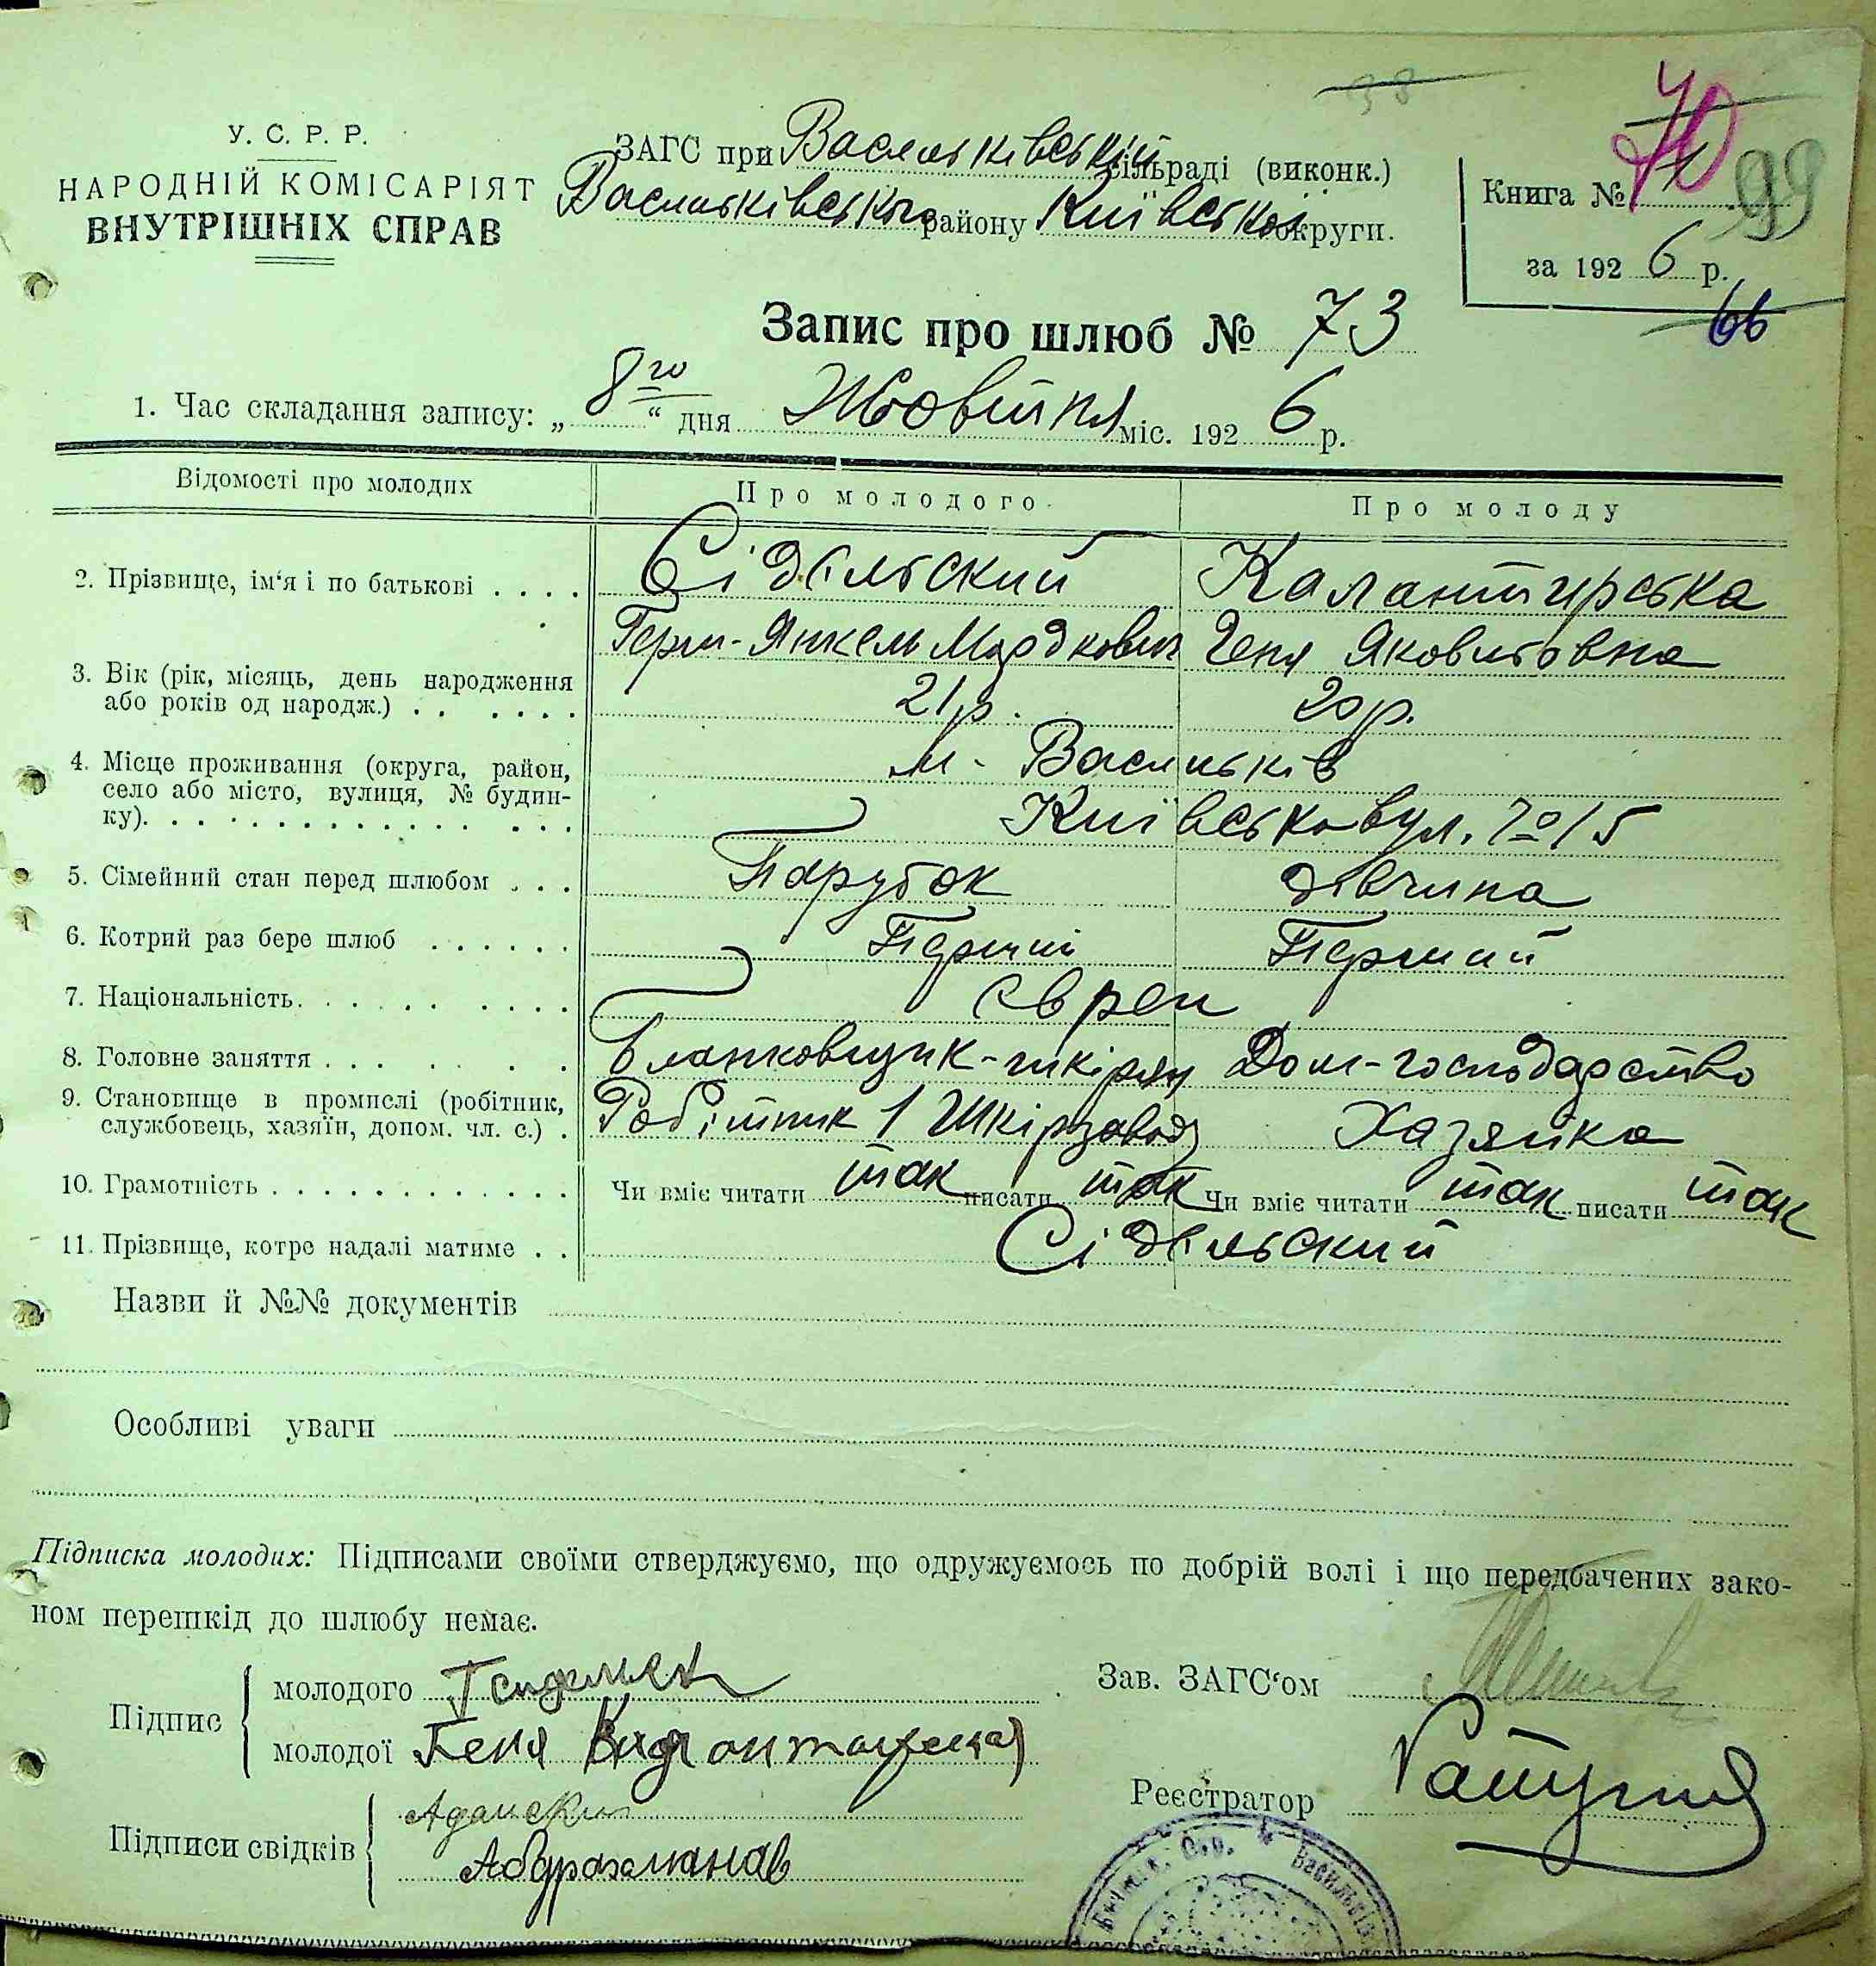 У. С. Р. Р.
НАРОДНІЙ КОМІСАРІЯТ
ВНУТРІШНІХ СПРАВ
ЗАГС при Васильківській сільраді (виконк.)
Васильківського району Київської округи.
38
Книга № 1 99
за 1926 р.
66
Запис про шлюб № 73
1. Час складання запису: „8го“ дня Жовтня міс. 1926 р.
Відомості про молодих Про молодого Про молоду
2. Прізвище, ім‘я і по батькові . . . . Сідельский Калантирська
Герш-Янкель Мордкович Геня Яковлевна
3. Вік (рік, місяць, день народження
або років од народж.) . . . . . . 21 р. 20 р.
4. Місце проживання (округа, район, м. Васильків
село або місто, вулиця, № будин-
ку). Київська вул. № 15
5. Сімейний стан перед шлюбом . . . Парубок дівчина
6. Котрий раз бере шлюб . . . . . . Перший Перший
7. Національність. євреи
8. Головне заняття Бланковщик-шкірян Дом-господарство
9. Становище в промислі (робітник,
службовець, хазяїн, допом. чл. с.) . Робітник 1 Шкірзавод Хазяйка
10. Грамотність Чи вміє читати так писати так Чи вміє читати так писати так
11. Прізвище, котре надалі матиме . . Сідельский
Назви й №№ документів
Особливі уваги
Підписка молодих: Підписами своїми стверджуємо, що одружуємось по добрій волі і що передбачених зако-
ном перешкід до шлюбу немає.
Підпис
молодого
молодої Геня
Зав. ЗАГС‘ом
Реєстратор
Підписи свідків